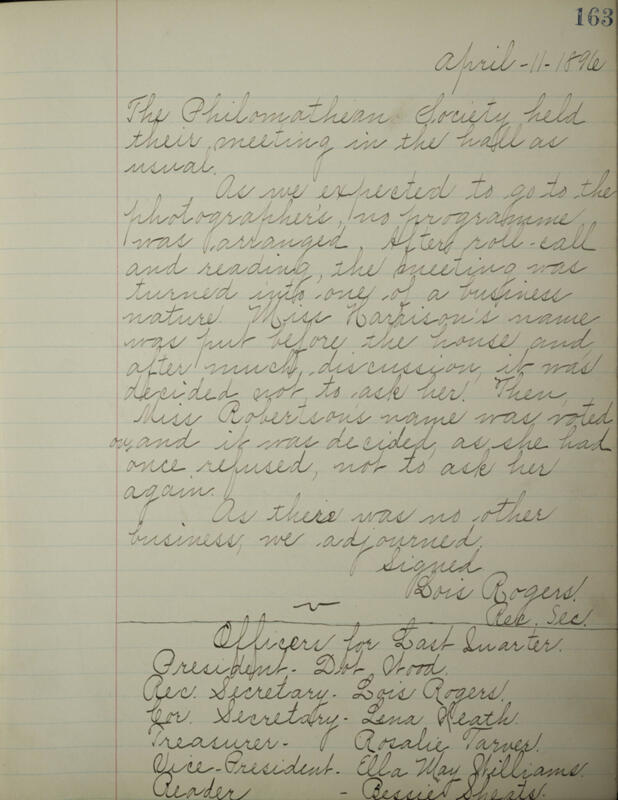 163
April-11-1896
The Philomathean Society held
their meeting in the hall as
usual.
As we expected to go to the
photographer's, no programme
was arranged. After roll-call
and reading, the meeting was
turned into one of a business
nature. Miss Harrison's name
was put before the house and,
after much discussion, it was
decided not to ask her. Then,
Miss Robertson's name was voted
on, and it was decided, as she had
once refused, not to ask her
again.
As there was no other
business, we adjourned.
Signed
Lois Rogers.
Rec. Sec.
Officers for Last Quarter.
President - Dot Wood.
Rec. Secretary - Lois Rogers.
Cor. Secretary - Lena Heath.
Treasurer - Rosalie Tarver.
Vice-President - Ella May Williams.
Reader - Bessie Sheats.